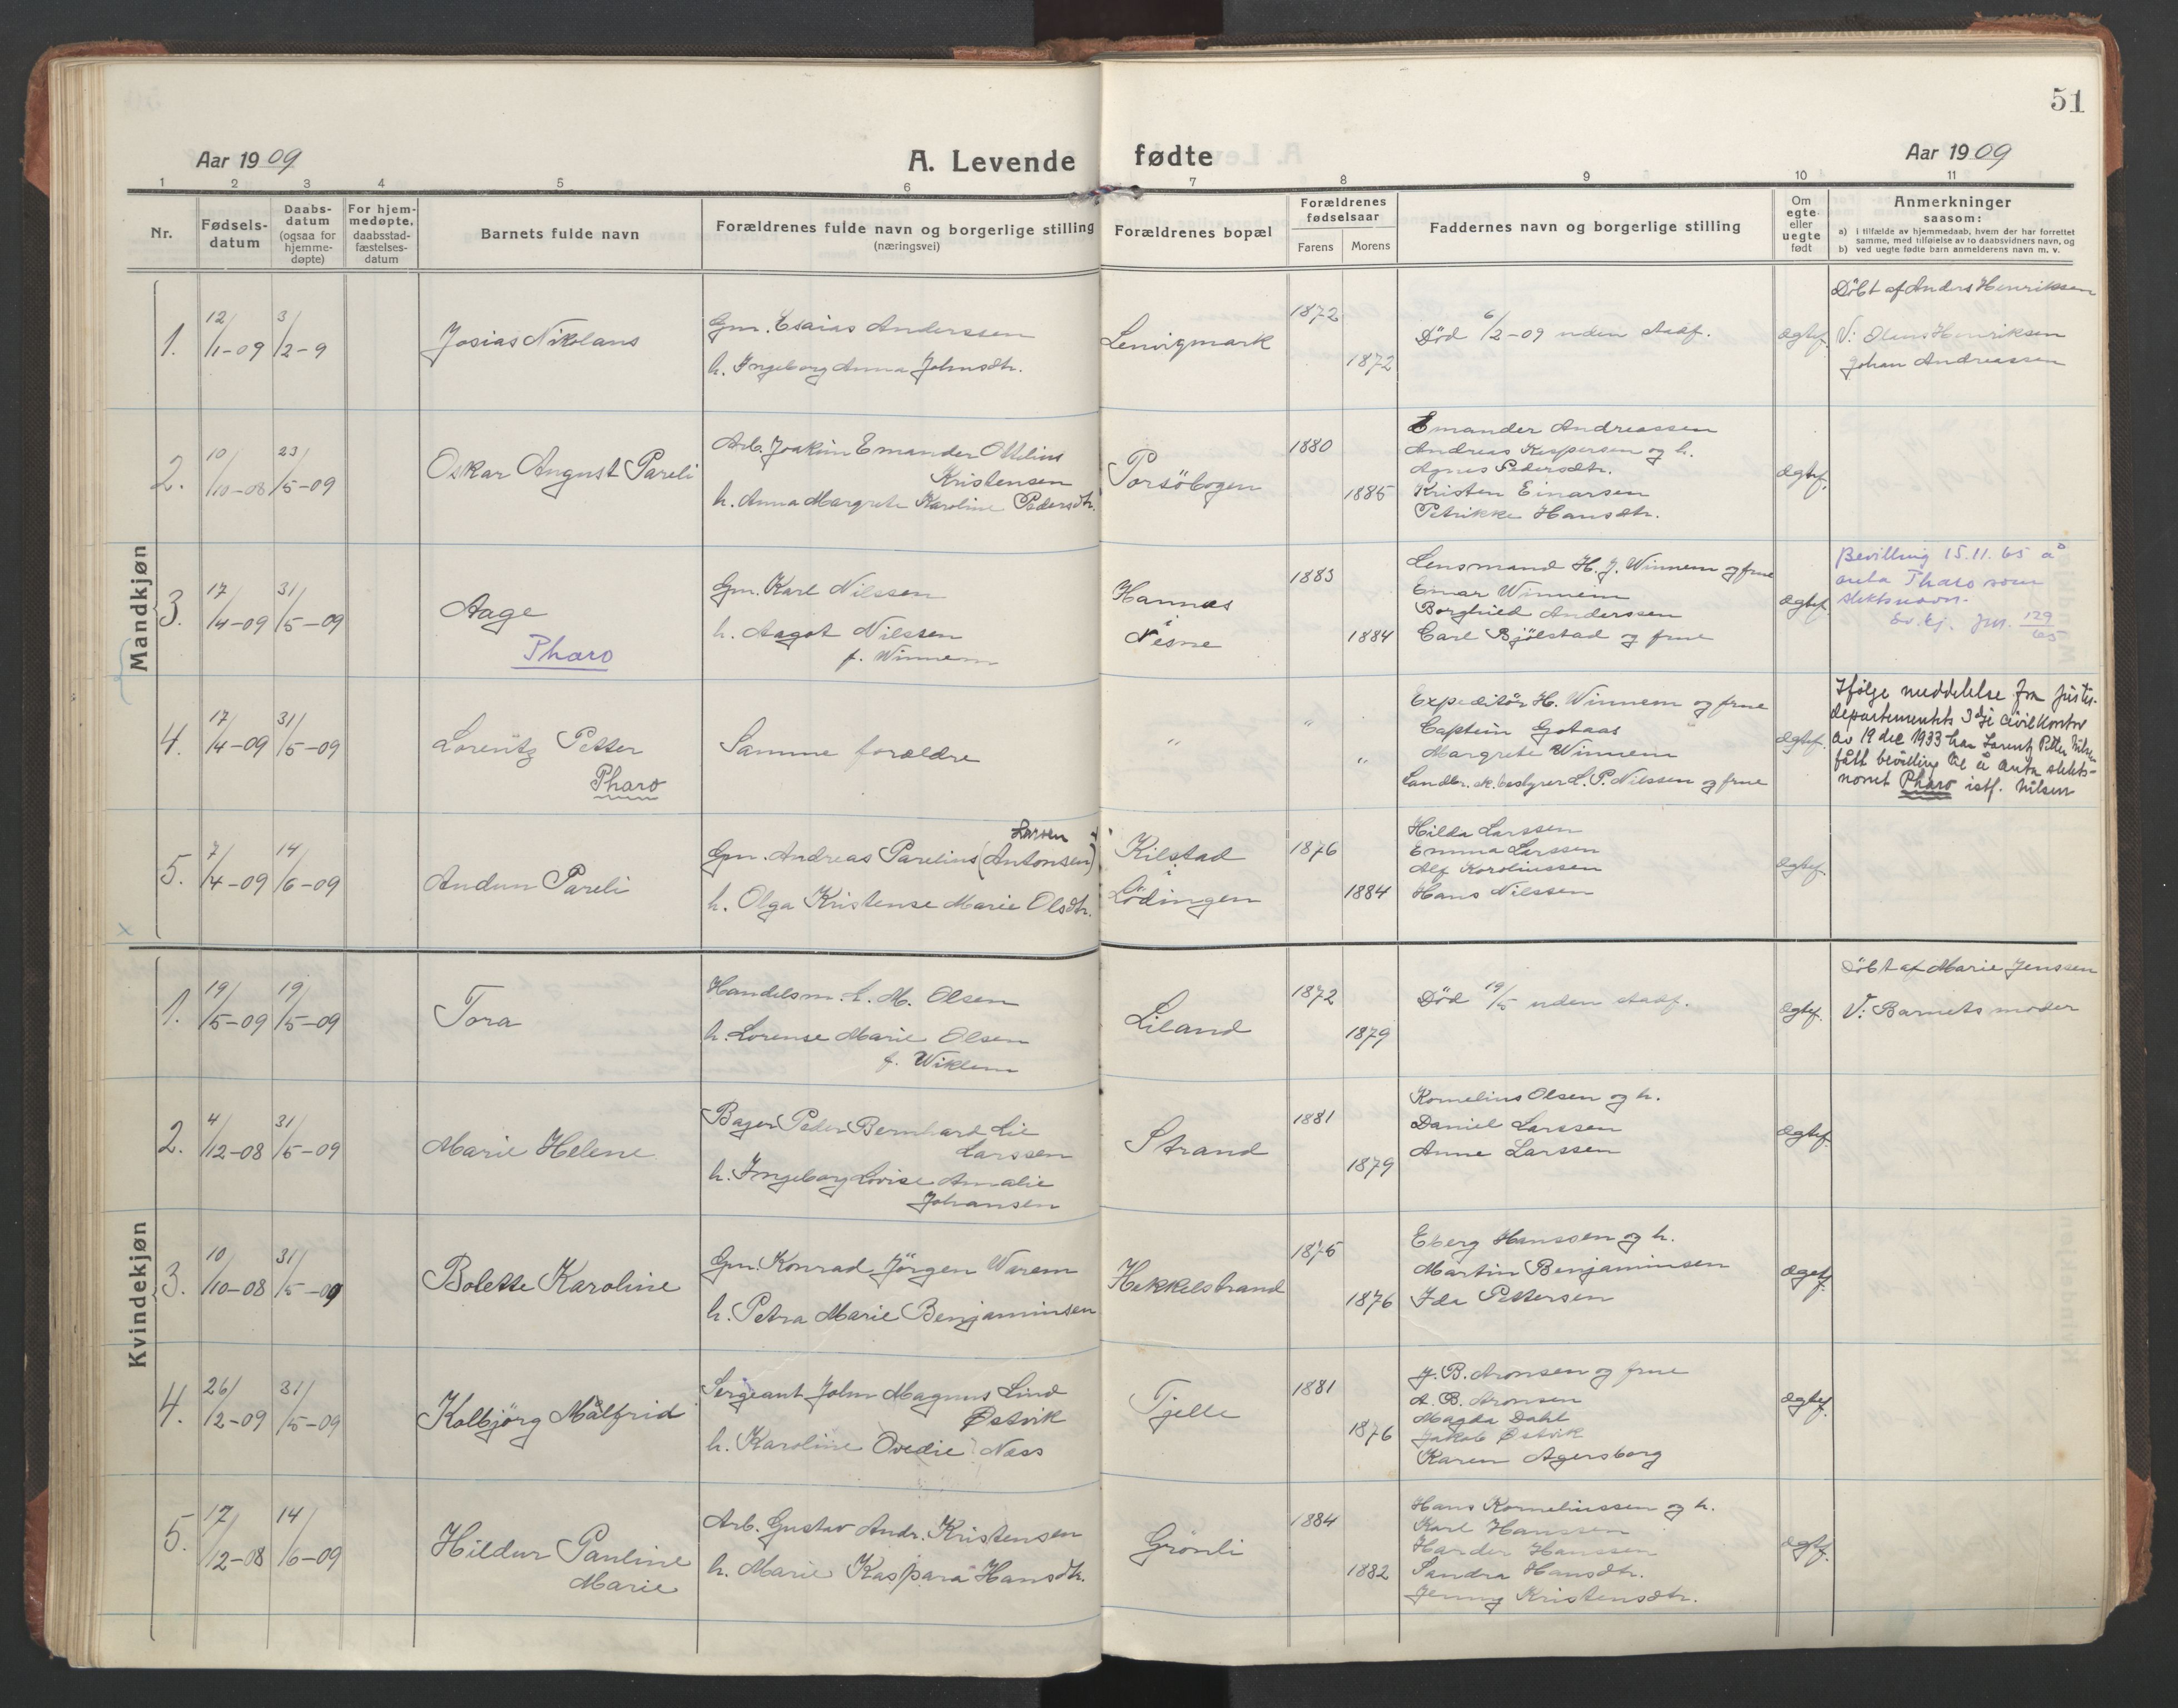 51
Aar 1909
A. Levende fødte
Aar 1909
1 2 3 4 5 6 7 8 9 10 11
Nr.
Fødsels-
datum
Daabs-
datum
(ogsaa for
hjemme-
døpte)
For hjem-
medøpte,
daabsstad-
fæstelses-
datum
Barnets fulde navn
Forældrenes fulde navn og borgerlige stilling
(næringsvei)
Forældrenes bopæl
Forældrenes
fødselsaar
Farens
Morens
Faddernes navn og borgerlige stilling
Om
egte
eller
uegte
født
Anmerkninger
saasom:
a) i tilfælde av hjemmedaab, hvem der har forrettet
samme, med tilføielse av to daabsvidners navn, og
b) ved uegte fødte barn anmelderens navn m. v.
Mandkjøn
1.
12/1-09
3/2-9
Josias Nikolaus
Gm. Esaias Anderssen
h. Ingeborg Anna Johnsdtr.
Lenvigmark
1872
1872
Död 6/2-09 uden stadf.
ægtef.
Döbt af Anders Henriksen
V: Olaus Henriksen
Johan Andreassen
2.
10/10-08
23/5-09
Oskar August Pareli
Arb. Joakim Emander Ottelius
Kristensen
h. Anna Margrete Karoline Pedersdtr.
Porsöbogen
1880
1885
Emander Andreassen
Andreas Kaspersen og h.
Agnes Pedersdtr.
Kristen Einarsen
Petrikke Hansdtr.
ægtef.
3.
17/4-09
31/5-09
Aage
Pharo
Gm. Karl Nilssen
h. Aagot Nilssen
f. Winnem
Hannæs
i
Nesne
1883
1884
Lensmand H. J. Winnem og frue
Einar Winnem
Borghild Anderssen
Carl Bjölstad og frue
ægtef.
Bevilling 15.11.65 å
anta Pharo som
slektsnavn.
jnr. 129/65
4.
17/4-09
31/5-09
Lorentz Petter
Pharo
Samme forældre
"
"
"
Expeditör H. Winnem og frue
Captein Gotaas
Margrete Winnem
Landbr.sk.bestyrer L. P. Nilssen og frue
ægtef.
Ifölge meddelelse fra justis-
departementets 3dje civilkontor
av 19 dec 1933 har Lorentz Petter Nilsen
fått bevilling til å anta slekts-
navnet Pharo istf. Nilsen
5.
7/4-09
14/6-09
Audun Pareli
Larsen
Gm. Andreas Parelius (Antonsen)
h. Olga Kristense Marie Olsdtr.
Kilstad
i
Lödingen
1876
1884
Hilda Larssen
Emma Larssen
Alf Karoliussen
Hans Nilssen
ægtef.
x
Kvindekjøn
1.
19/5-09
19/5-09
Tora
Handelsm. L. M. Olsen
h. Lorense Marie Olsen
f. Wiklem
Liland
1872
1879
Död 19/5 uden stadf.
ægtef.
Döbt af Marie Jenssen
V: Barnets moder
2.
4/12-08
31/5-09
Marie Helene
Bager Peder Bernhard Lie
Larssen
h. Ingeborg Lovise Amalie
Johansen
Strand
1881
1879
Kornelius Olsen og h.
Daniel Larssen
Anne Larssen
ægtef.
3.
10/10-08
31/5-09
Bolette Karoline
Gm. Konrad Jörgen Warem
h. Petra Marie Benjaminsen
Hekkelstrand
1875
1876
Eberg Hanssen og h.
Martin Benjaminsen
Ida Pettersen
ægtef.
4.
26/2-09
31/5-09
Kolbjörg Målfrid
Sergeant John Magnus Lind
Østvik
h. Karoline Ovedie Næss
Tjelle
1881
1876
J. B. Aronsen og frue
A. B. Aronsen
Magda Dahl
Jakob Østvik
Karen Agersborg
ægtef.
5.
17/12-08
14/6-09
Hildur Pauline
Marie
Arb. Gustav Andr. Kristensen
h. Marie Kaspara Hansdtr.
Grönli
1884
1882
Hans Korneliussen og h.
Karl Hanssen
Harder Hanssen
Sandra Hansdtr.
Jenny Kristensdtr.
ægtef.